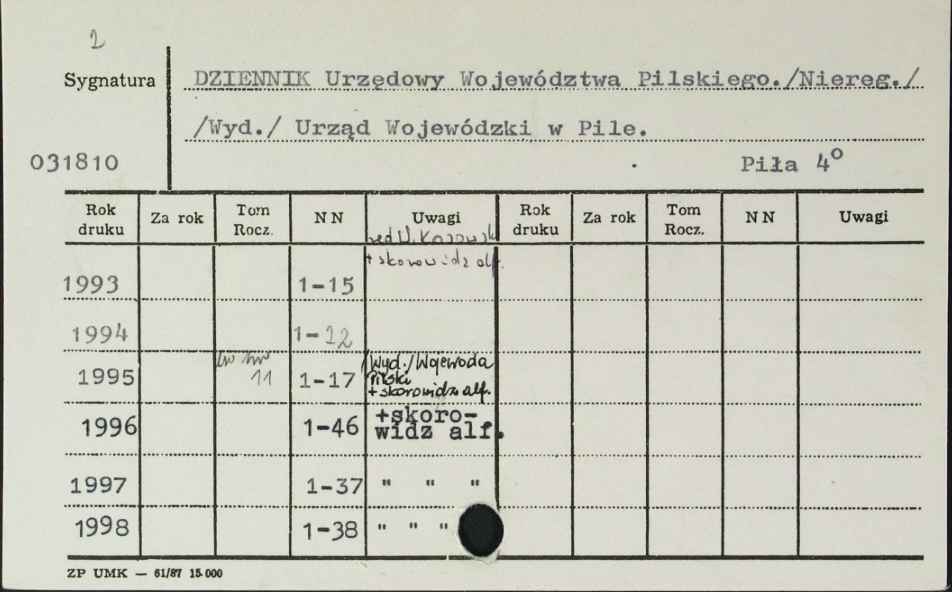 2
Sygnatura DZIENNIK Urzędowy Województwa Pilskiego./Niereg./
/Wyd./ Urząd Wojewódzki w Pile.
031810 Piła 4o
Rok druku Za rok Tom Rocz. N N Uwagi Rok druku Za rok Tom Rocz. N N Uwagi
+ skorowidz alf.
1993 1-15
1994 1-22
1995 11 1-17 /Wyd./Wojewoda
Pilski
+skorowidz alf.
1996 1-46 +skoro-
widz alf.
1997 1-37 " " "
1998 1-38 " " "
ZP UMK — 61/87 15.000